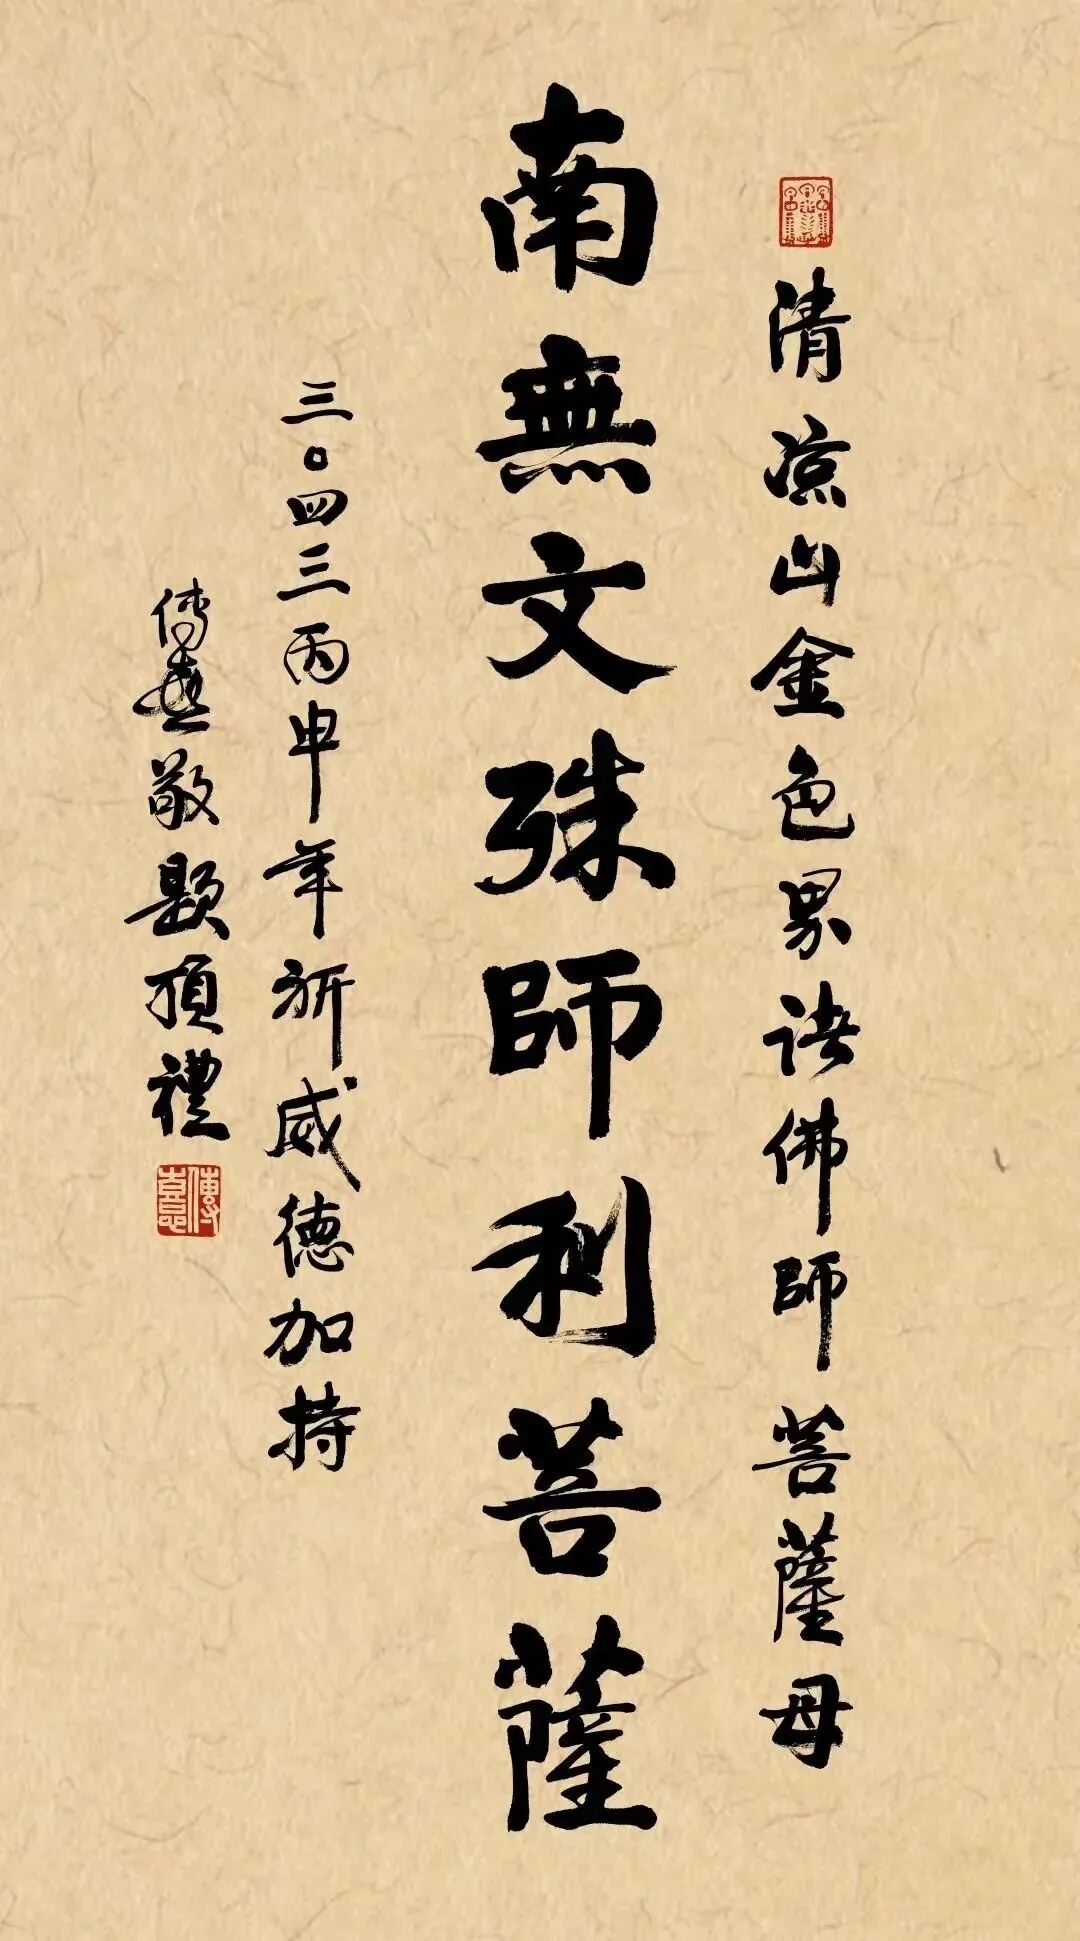 清涼山金色界諸佛師菩薩母
南無文殊師利菩薩
三〇四三丙申年祈威德加持
傳意敬題頂禮
傳意